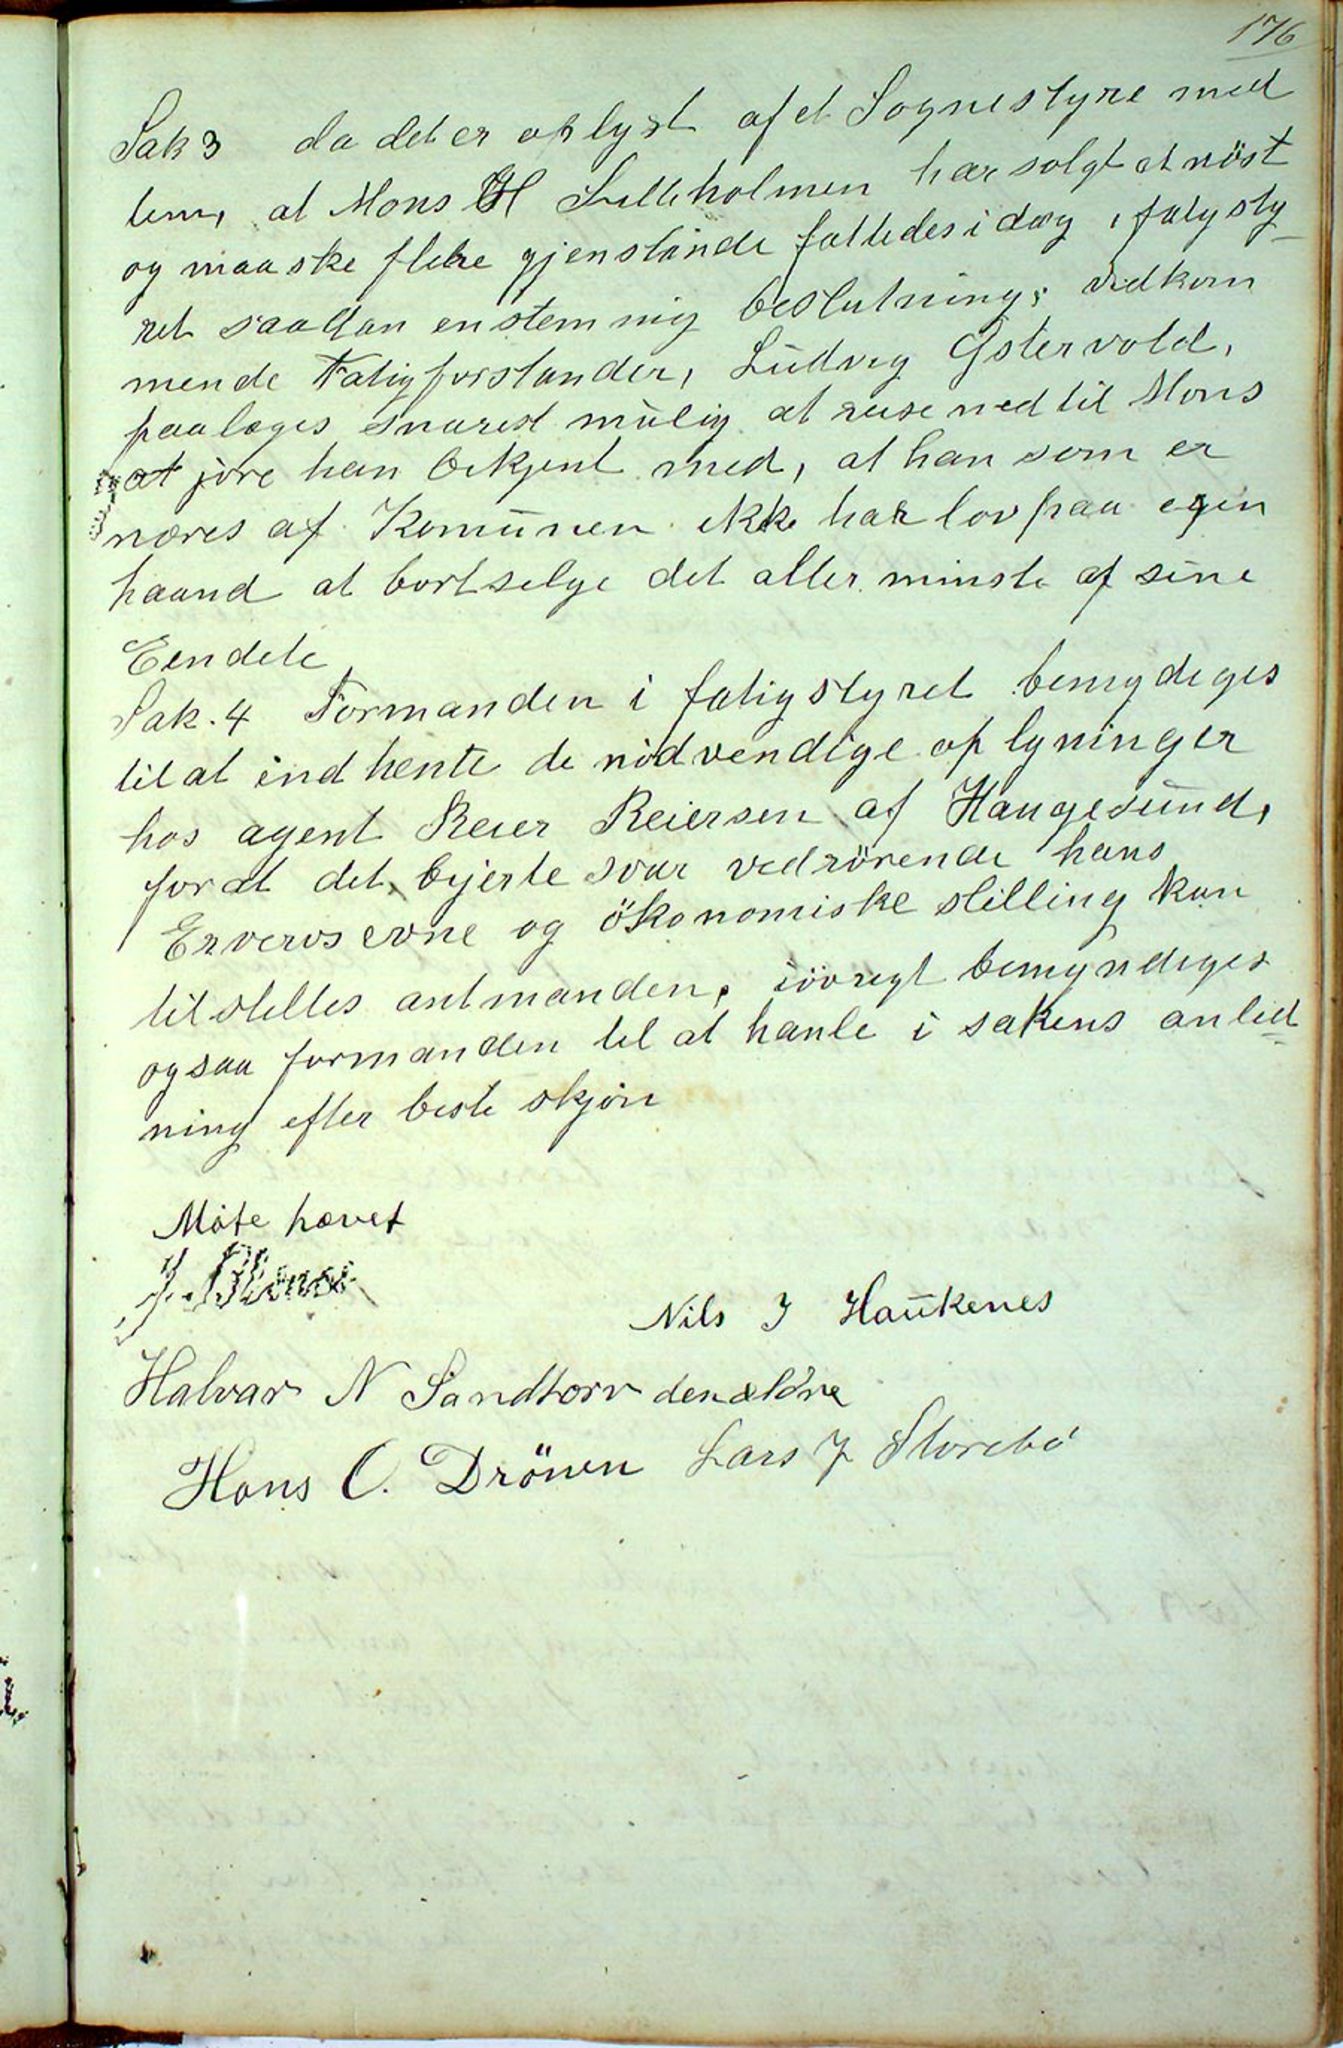 176
Sak 3 da det er oplyst af et Sognestyre med
lem, at Mons H Lilleholmen har solgt et nöst
og maaske flere gjenstände fattedes i dag i fatigsty
ret saadan enstemmig beslutning; vedkom
mende Fatigforstander, Ludvig Östervold,
paalæges snarest mulig at reise ned til Mons
at jöre han bekjent med, at han som er
næres af Komunen ikke har lov paa egen
haand at bortselge det aller minste af sine
Eendele
Sak. 4 Formanden i fatigstyret bemydeges
til at indhente de nödvendige oplyninger
hos agent Reier Reiersen af Haugesund,
for at det bejerte svar vedrörende hans
Ervervs evne og ökonomiske stilling kan
tilstilles amtmanden, iövrigt bemyndiges
ogsaa formanden til at hanle i sakens anled
ning efter beste skjön
Möte hævet
Nils J Haukenes
Halvar N Sandtorv den ældre
Hans O. Drönen Lars J Storebö